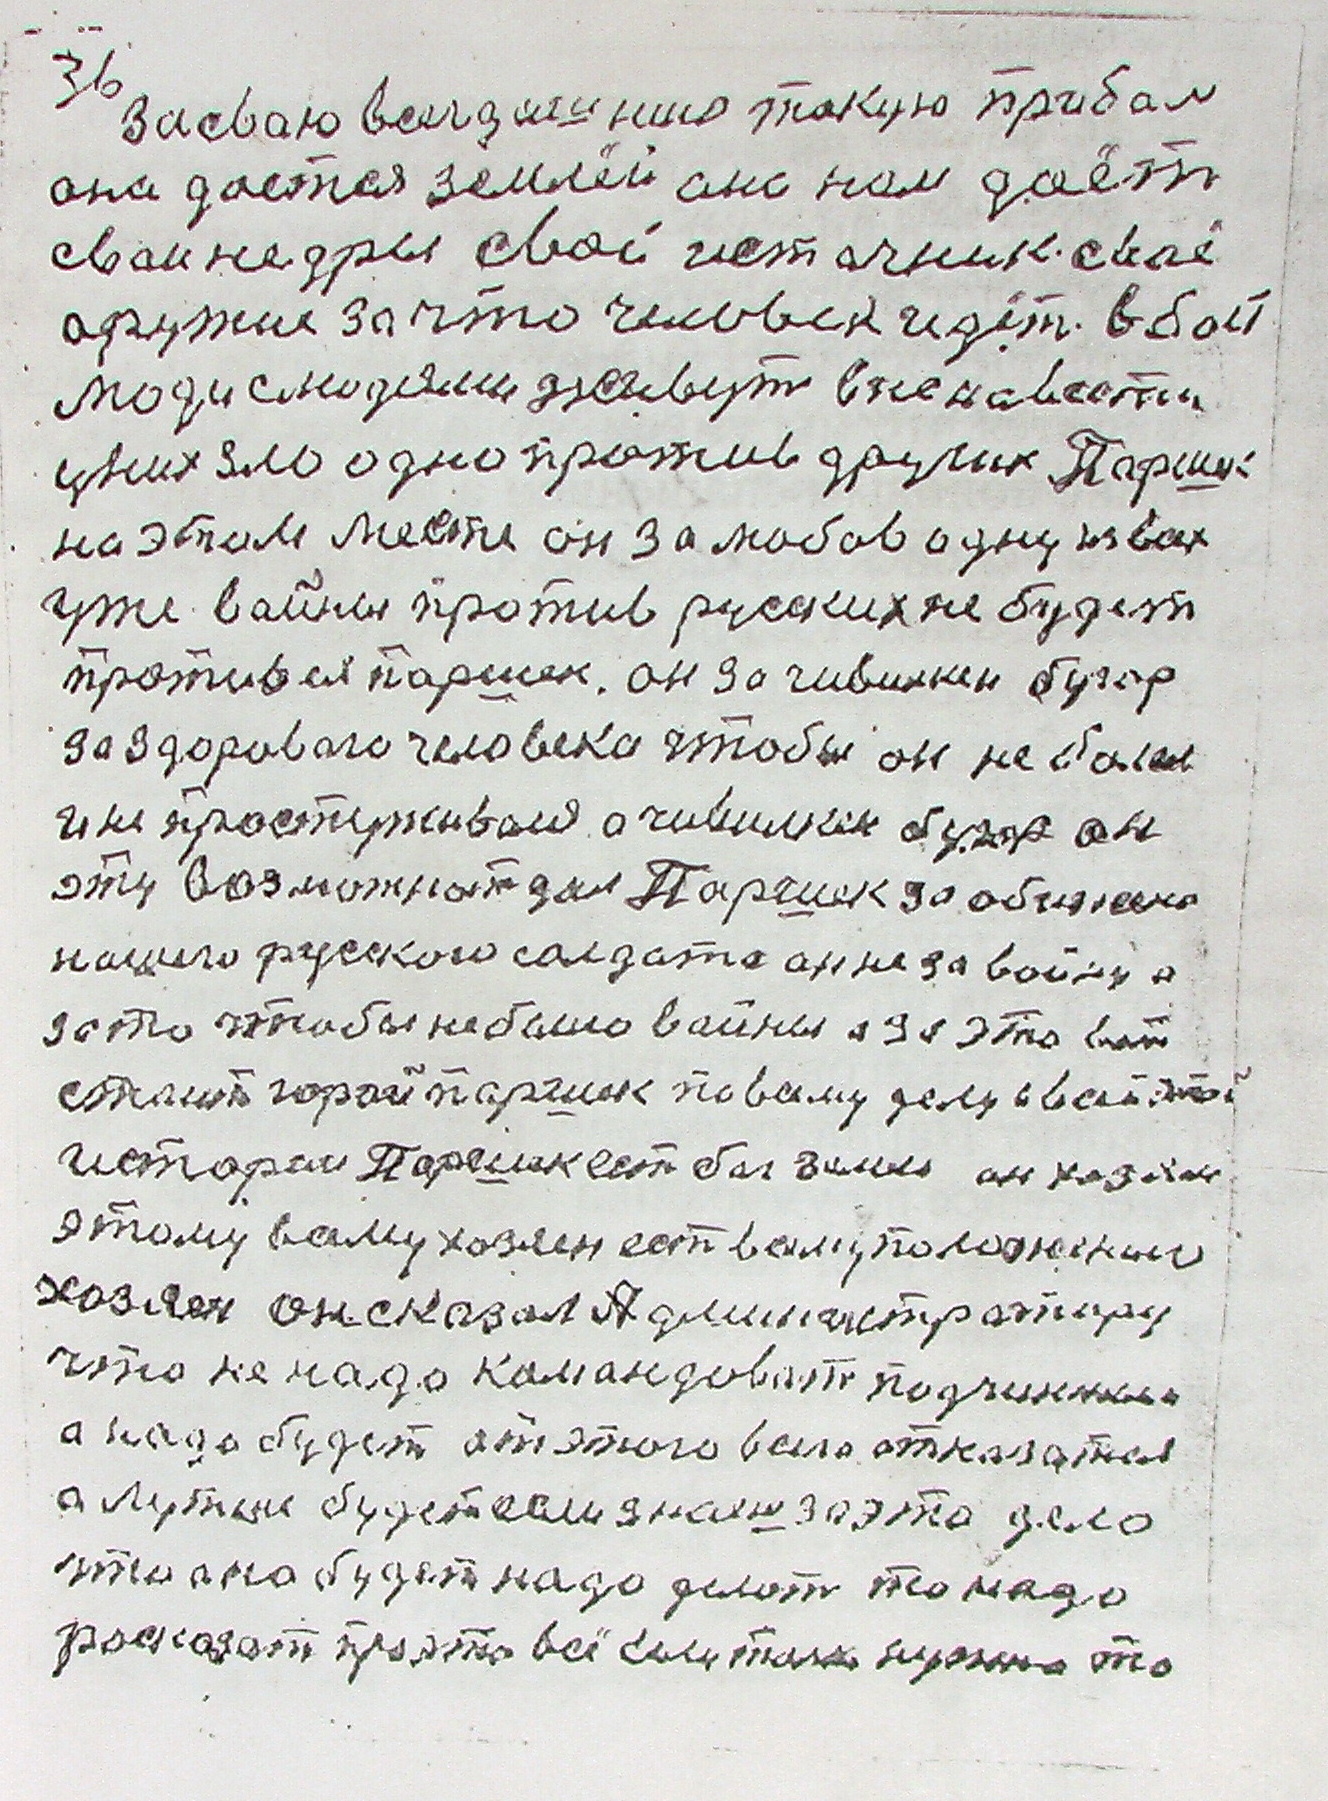 36
За сваю всигдашнию такую прибал
она дается землёй она нам даёт
сваи недры свой источник. сваё
аружие за что человек идёт. в бой
люди с людями живут в ненависти
у них зло одно против других Паршек
на этам месте он за любов одну из вах
уже вайны против руских не будет
противея паршек. он за чивилкен бугор
за здоровага человека чтобы он не балел
и не простуживался а чивилкен бугор он
эту возможност дал Паршек за обижена
нашего руского салдата он не за войну а
за то чтобы не было вайны а за это вот
стаит горой паршек по всему делу а в сей этой
истории Паршек ест бог земли он хозяин
этому всему хозяен ест всему положению
хозяен он сказал Администратару
что не надо командоват подчиними
а надо будет от этого всего отказатся
а лутше будет если знаеш за это дело
что ано будет надо делат то надо
расказат про это всё если так нужно то